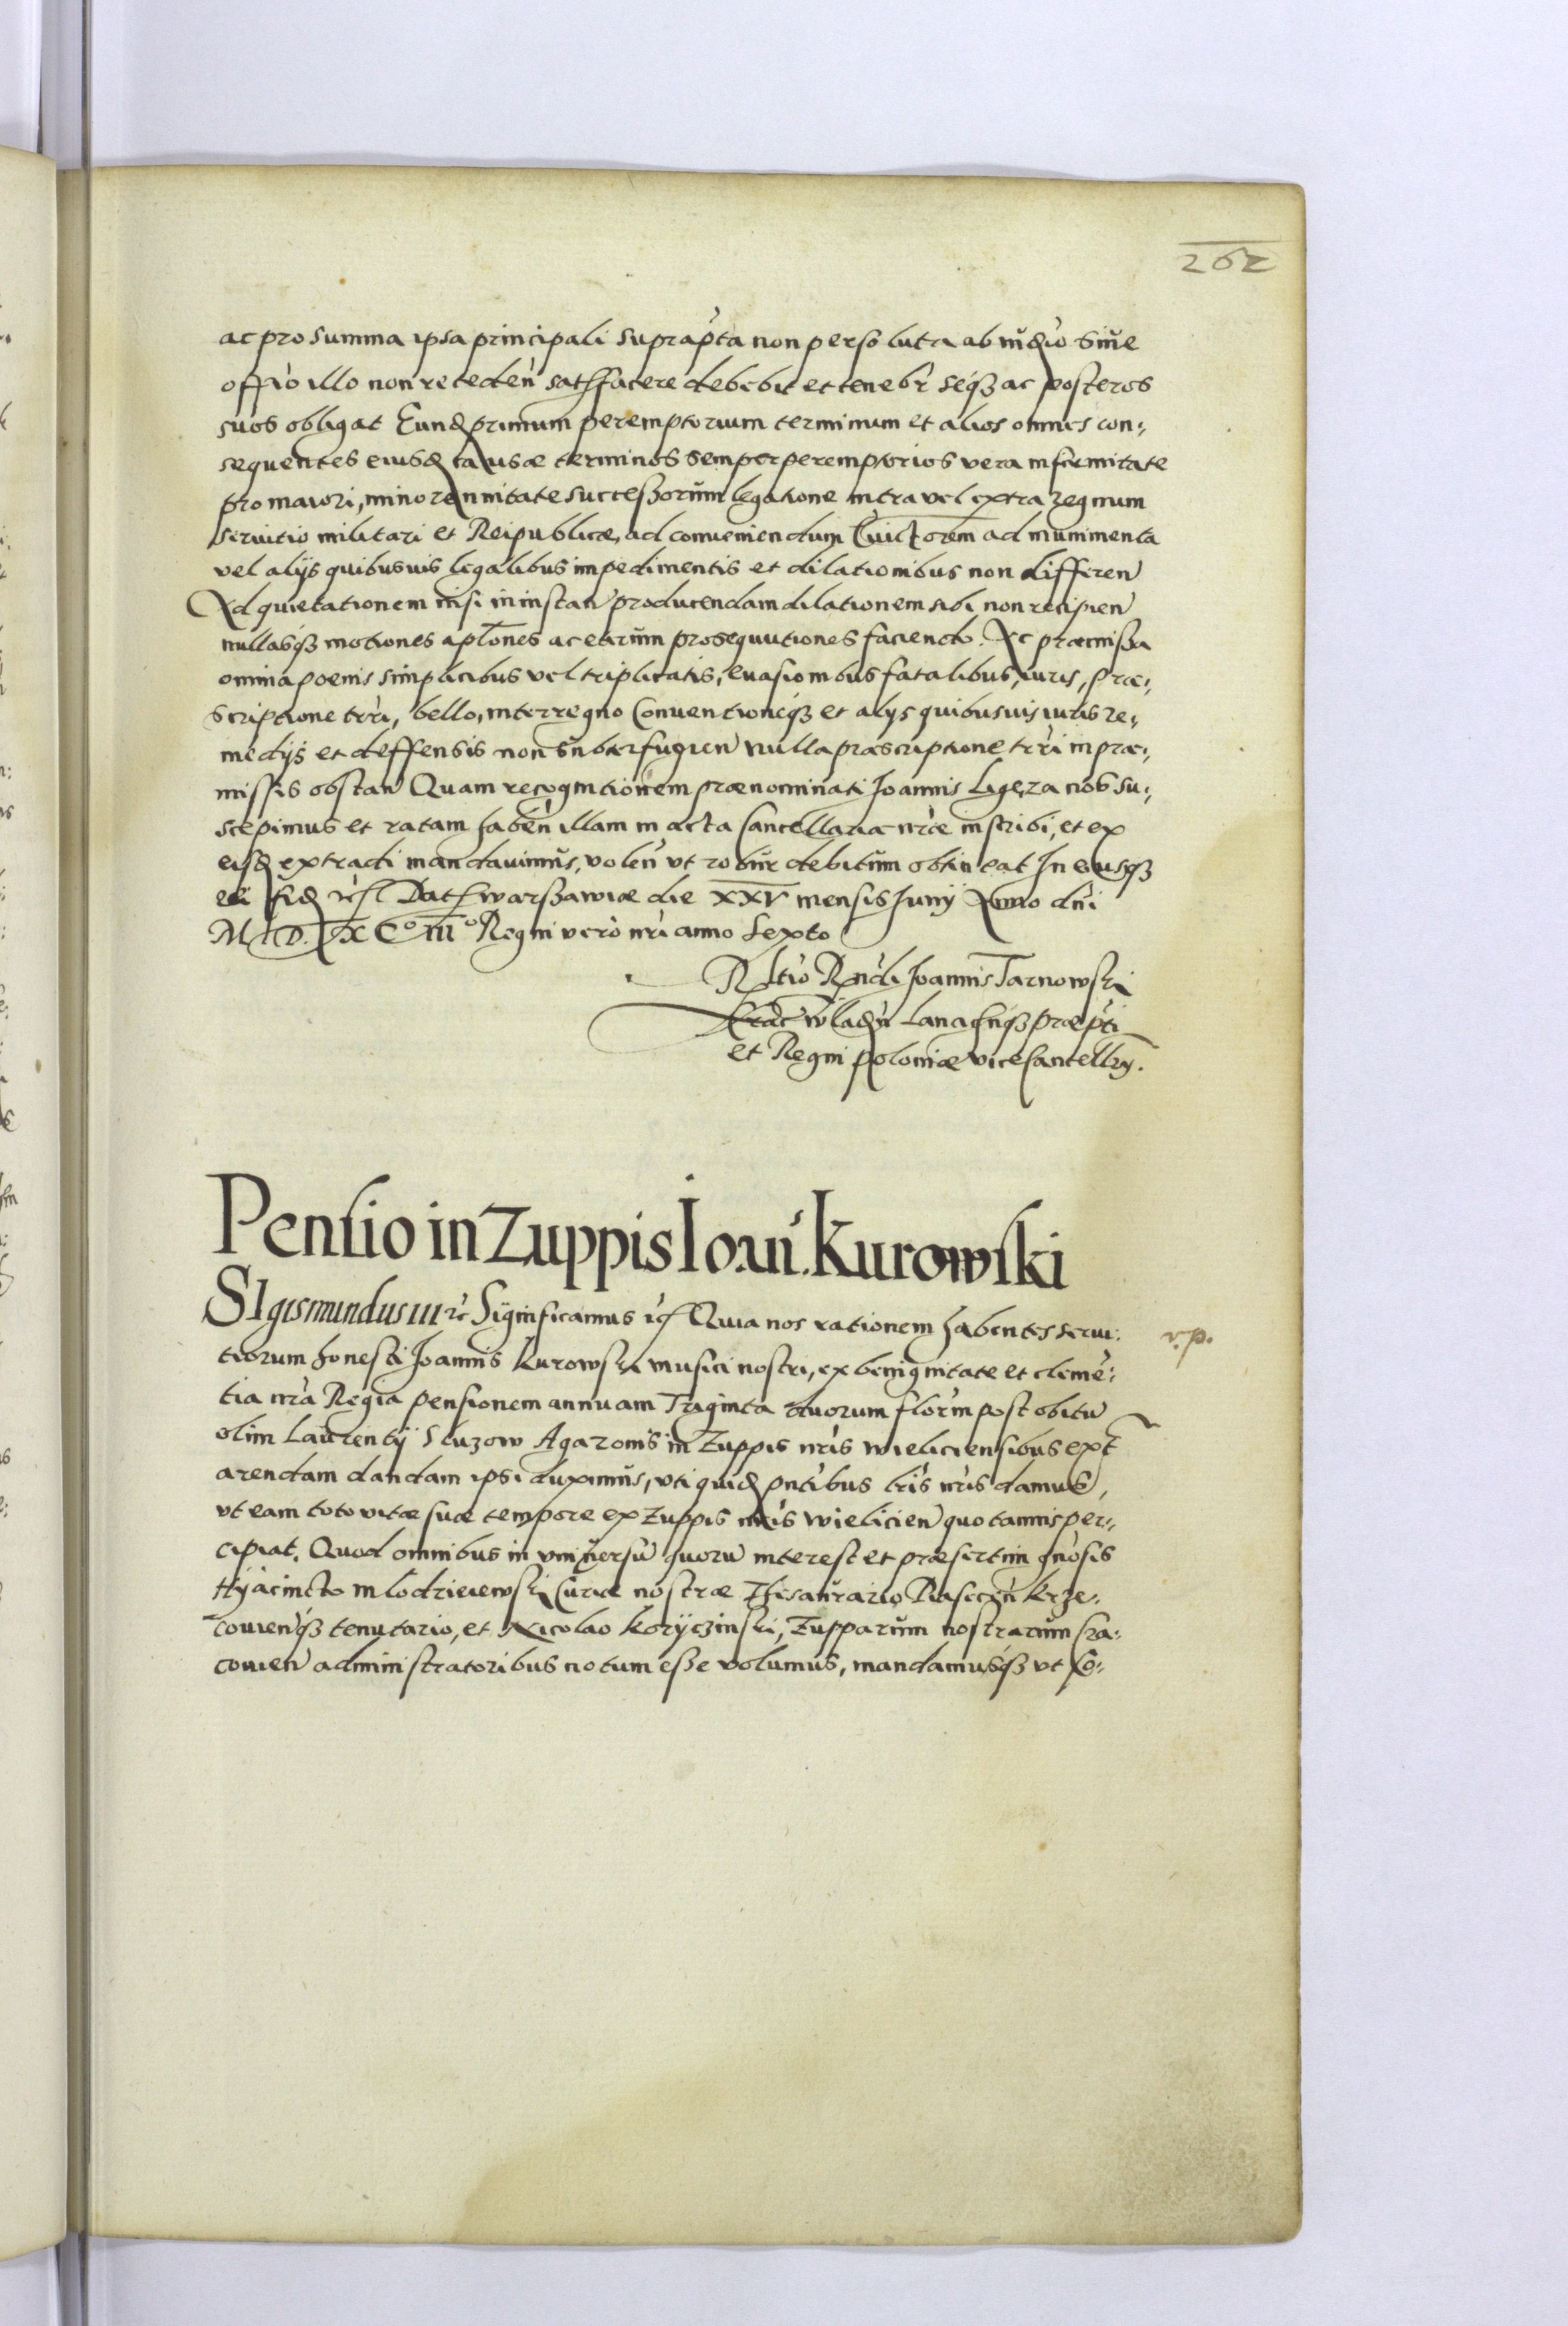 262
ac pro summa ipsa principali suprap̃ta non persoluta ab iud̃io siue
offi͠o illo non receden̄ satisfacere debebit et tenebr̃ seq̃ꝫ ac posteros
suos obligat Eund̃ primum peremptorium terminum et alios omnes con-
sequentes eiusd̃ causæ terminos semper peremptorios vera infirmitate
pro maiori, minorennitate successorum legatione intra vel extra regnum
seruitio militari et Reipublicæ, ad conueniendum Euictorem ad munimenta
vel alijs quibusuis legalibus impedimentis et dilationibus non differen̄
Ad quietationem nisi in instan̄ producendam dilationem sibi non recipien̄
nullasq̃ꝫ motiones aplõnes ac earum prosequutiones faciendo. Ac præmissa
omnia poenis simplicibus vel triplicatis, euasionibus fatalibus, iuris, præ-
scriptione trr̃i, bello, interregno Conuentioneq̃ꝫ et alijs quibusuis iuris re-
medijs et deffensis non subterfugien̄ nulla præscriptione trr̃i in præ-
missis obstan̄ Quam recognitionem prænominati Joannis Ligeza nos su-
scepimus et ratam haben̄ illam in acta Cancellariæ nr̃æ inscribi, et ex
eisd̃ extradi mandauimus, volen̄ vt robur debitum obtineat In cuiusq̃ꝫ
rei fid̃ Dat̃ Warssawiæ die XXV mensis Junij Anno dn̄i
M. D. XCº. IIIº Regni vero nr̃i anno Sexto
Rltio Rn̄di Joannis Tarnowski
Crac̃ Wlad̃n Lancicin̄q̃ꝫ præp̃ti
et Regni Poloniæ viceCancellrij.
Pensio in Zuppis Ioan̄i. Kurowski
SIgismundus III ꝛc̃ Significamus Quia nos rationem habentes serui-
v. p.
tiorum honesti Joannis Kurowski musici nostri, ex benignitate et clemẽ-
tia nr̃a Regia pensionem annuam Triginta duorum flor̃in post obitũ
olim Laurentij Sluzow Agazonis in Zuppis nr̃is Wieliciensibus ext̃
arendam dandam ipsi duximus, vti quid̃ pn̄tibus lr̃is nr̃is damus,
vt eam toto vitæ suæ tempore ex Zuppis nr̃is Wielicien̄ quotannis per-
cipiat. Quod omnibus in vniuersũ quorũ interest et præsertim gn̄osis
Hyacincto Mlodzieiewski Curiæ nostræ Thesaurario Piasecin̄ Krze-
couien̄q̃ꝫ tenutario, et Nicolao Koryczinski, Zupparum nostrarum Cra-
couien̄ administratoribus notum esse volumus, mandamusq̃ꝫ vt